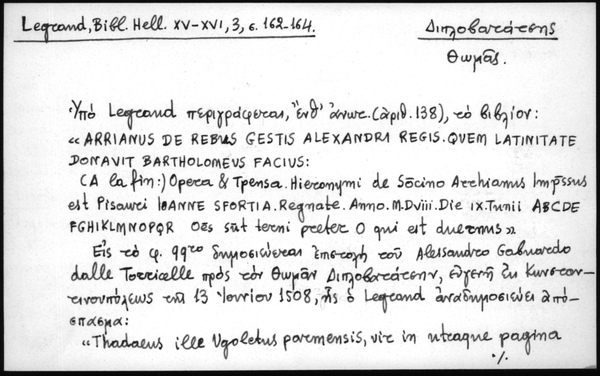 Legrand, Bibl. Hell. XV-XVI, 3, σ. 162-164.
Διπλοβατάτσης
Θωμᾶς.
Ὑπό Legrand περιγράφεται, ἔνθ' ἄνωτ. (ἀριθ. 138), τό βιβλίον:
« ARRIANUS DE REBUS GESTIS ALEXANDRI REGIS. QUEM LATINITATE
DONAVIT BARTHOLOMEVS FACIUS:
(A la fin:) Opera & Ipensa. Hieronymi de Sõcino Arrhianus Impr̄ssus
est Pisauri IOANNE SFORTIA. Regnate. Anno. M.Dviii. Die IX. Iunii ABCDE
FGHIKLMNOPQR Oēs sūt terni preter O qui est duernus »
Εἰς τό φ. 99το δημοσιεύεται ἐπιστολή τοῦ Alessandro Gabuardo
dalle Torricelle πρός τόν Θωμᾶν Διπλοβατάτσην, εὐγενῆ ἐκ Κωνσταν-
τινουπόλεως τῇ 13 Ἰουνίου 1508, ἧς ὁ Legrand ἀναδημοσιεύει ἀπό-
σπασμα:
« Thadaeus ille Ugoletus parmensis, vir in utraque pagina
./.